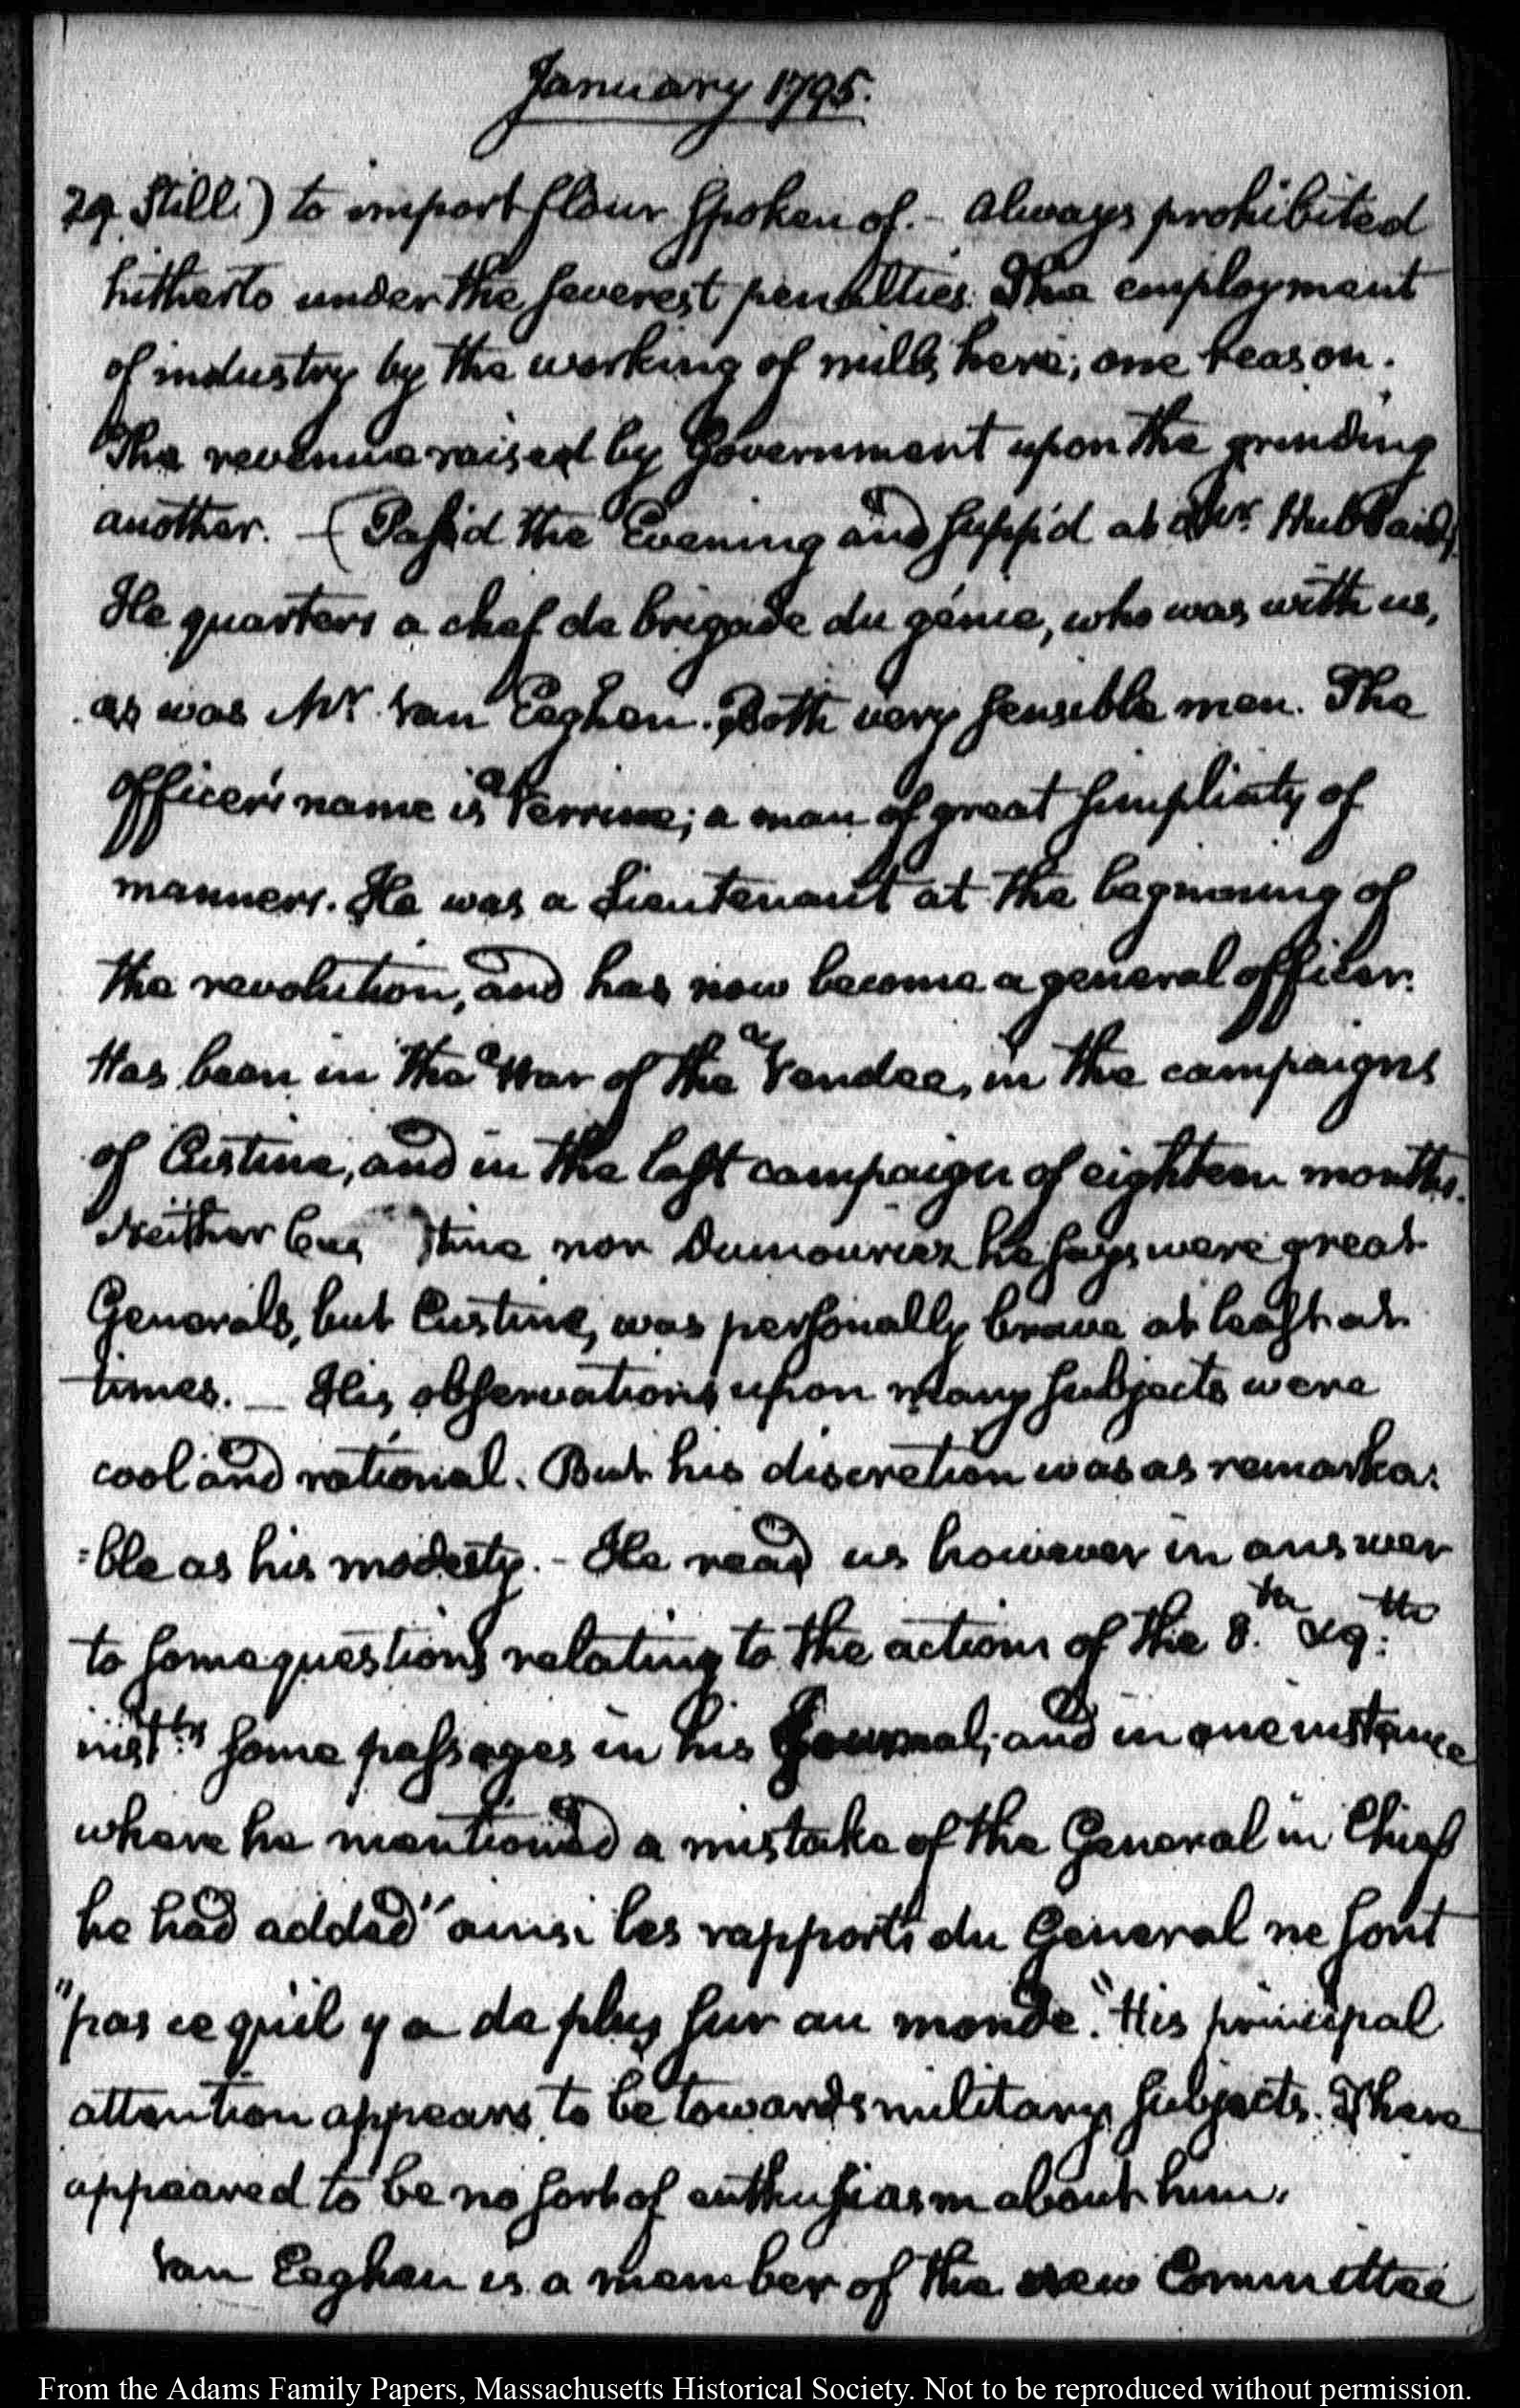 January 1795.
29. Still.) to import flour spoken of. – always prohibited
hitherto under the severest penalties. The employment
of industry by the working of mills here; one reason.
The revenue raised by Government upon the grinding
another. – (Pass'd the Evening and supp'd at Mr. Hubbard's)
He quarters a chef de brigade du génie, who was with us,
as was Mr. Van Eeghen. Both very sensible men. The
officer's name is Verrine; a man of great simplicity of
manners. He was a Lieutenant at the beginning of
the revolution, and has now become a general officer.
Has been in the War of the Vendee, in the campaigns
of Custine, and in the last campaign of eighteen months.
Neither Cus tine nor Dumouriez he says were great
Generals, but Custine, was personally brave at least at
times. – His observations upon many subjects were
cool and rational. But his discretion was as remarka:
:ble as his modesty. – He read us however in answer
to some questions relating to the actions of the 8.th & 9:th
inst:ts some passages in his Journal; and in one instance
where he mentioned a mistake of the General in Chief
he had added "ainsi les rapports du General ne sont
"pas ce qu'il y a de plus sur au monde." His principal
attention appears to be towards military subjects. There
appeared to be no sort of enthusiasm about him.
Van Eeghen is a member of the new Committee
From the Adams Family Papers, Massachusetts Historical Society. Not to be reproduced without permission.